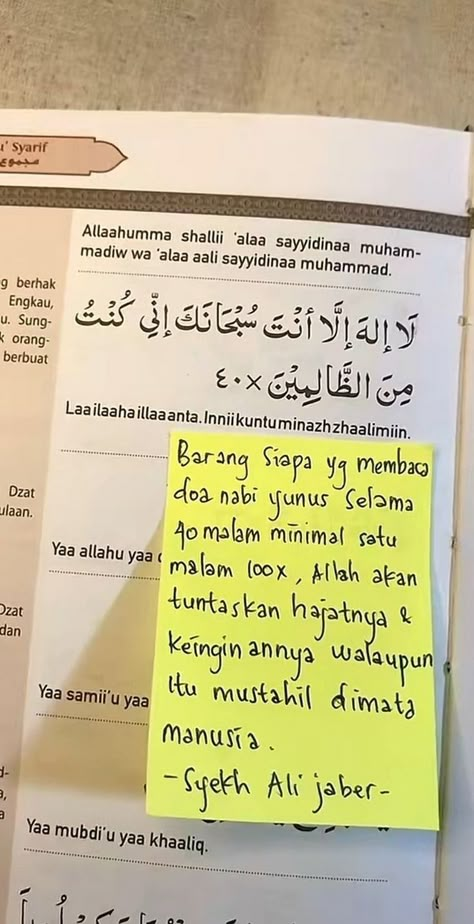 u' Syarif
مجموع
Allaahumma shallii 'alaa sayyidinaa muham-
madiw wa 'alaa aali sayyidinaa muhammad.
g berhak
Engkau,
u. Sung-
k orang-
berbuat
لَا إِلَهَ إِلَّا أَنْتَ سُبْحَانَكَ إِنِّي كُنْتُ
مِنَ الظَّالِمِيْنَ ×٤٠
Laa ilaaha illaa anta. Innii kuntu minazh zhaalimiin.
Barang Siapa yg membaca
doa nabi yunus Selama
40 malam minimal satu
malam 100x, Allah akan
tuntaskan hajatnya &
keinginannya walaupun
itu mustahil dimata
manusia.
-Syekh Ali jaber-
Dzat
ulaan.
Yaa allahu yaa
Dzat
dan
Yaa samii'u yaa
d-
a,
a
Yaa mubdi'u yaa khaaliq.